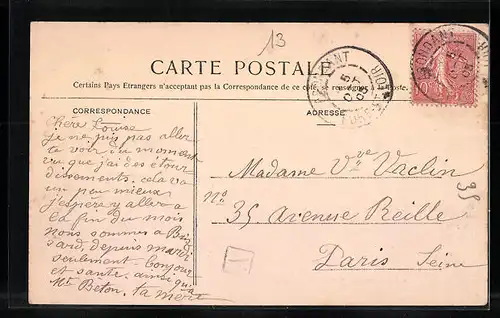 13
CARTE POSTALE
Certains Pays Etrangers n'acceptant pas la Correspondance de ce côté, se renseigner à la Poste.
CORRESPONDANCE
ADRESSE
Chère Louise
je ne puis pas aller
te voir du moment
vu que j'ai des étour
dissements, cela va
un peu mieux
j'espère y aller a
la fin du mois
nous sommes a
depuis mardi
seulement. bonjour
et santé, ainsi qu'a
Beton, ta mère
Madame Vve Vaclin
No 35 Avenue Reille
Paris Seine
35
10